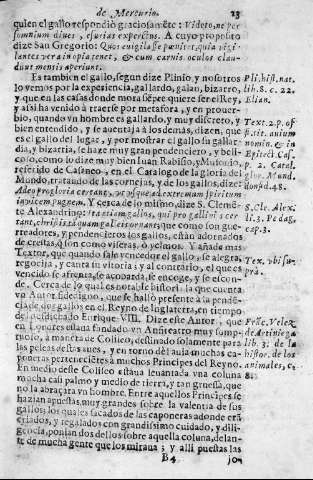 de Mercurio. 23
quien el gallo respondió graciosamẽte: Videto, ne per
somnium diues, esurias expertus. A cuyo proposito
dize San Gregorio: Quos enigilasse pœnitet, quia vigi-
lantes vera inopia tenet, & cum carnis oculos clau-
dunt mentis aperiunt.
Es tambien el gallo, segun dize Plinio, y nosotros
lo vemos por la experiencia, gallardo, galan, bizarro,
y que en las casas donde mora siẽpre quiere ser el Rey,
y assi ha venido à traerse por metafora, y en prouer-
bio, quando vn hombre es gallardo, y muy discreto, y
bien entendido, y se auentaja à los demàs, dizen, que
es el gallo del lugar, y por mostrar el gallo su gallar-
dia, y bizarria, se haze muy gran pendenciero, y beli-
coso, como lo dize muy bien Iuan Rabisio, y
referido de Casaneo, en el Catalogo de la gloria del
Mundo, tratando de las cornejas, y de los gallos, dize:
Adeo pro gloria certant, vt vsque ad extremum spiritum
inuicem pugnent. Y cerca de lo mismo, dize S. Clemẽ
te Alexandrino:
rreadores, y pendencieros los gallos, estàn adornados
de crestas, q̃ son como viseras, ò yelmos. Y añade mas
Textor, que quando sale vencedor el gallo, se alegra,
regocija, y canta su vitoria; y al contrario, el que es
vencido se afrenta, se acobarda, se encoge, y se escon-
de. Cerca de lo qual es notable historia la que cuenta
vn Autor fidedigno, que se hallò presente à la pendẽ-
cia de dos gallos en el Reyno de Inglaterra, en tiempo
del desdichado Enrique VIII. Dize este Autor, que
en Londres estaua fundado vn Anfiteatro muy sump-
tuoso, à manera de Coliseo, destinado solamente para
las peleas destas aues, y en torno dèl auia muchas ca-
pertenecientes à muchos Principes del Reyno.
En medio deste Coliseo estaua leuantada vna coluna
mucha casi palmo y medio de tierra, y tan gruessa, que
no la abraçara vn hombre. Entre aquellos Principes se
hazian apuestas, muy grandes sobre la valentia de sus
gallos; los quales sacados de las caponeras adonde crì
criados, y regalados con grandissimo cuidado, y dili-
gencia, ponian dos dellos sobre aquella coluna, delan-
te de mucha gente que los miraua; y alli puestas las
B 4 jo-
Pli. hist. nat.
lib. 8. c. 22.
Elian.
Text. 2. p. of
nomin. & in
Epitect. Cas.
p. 2. Carol.
glor. Mund.
S. Cle. Alex.
li. 3. Pedag.
cap. 3.
Tex. vbi su-
prà.
lib. 3. de la
histor. de los
animales, c.
8.